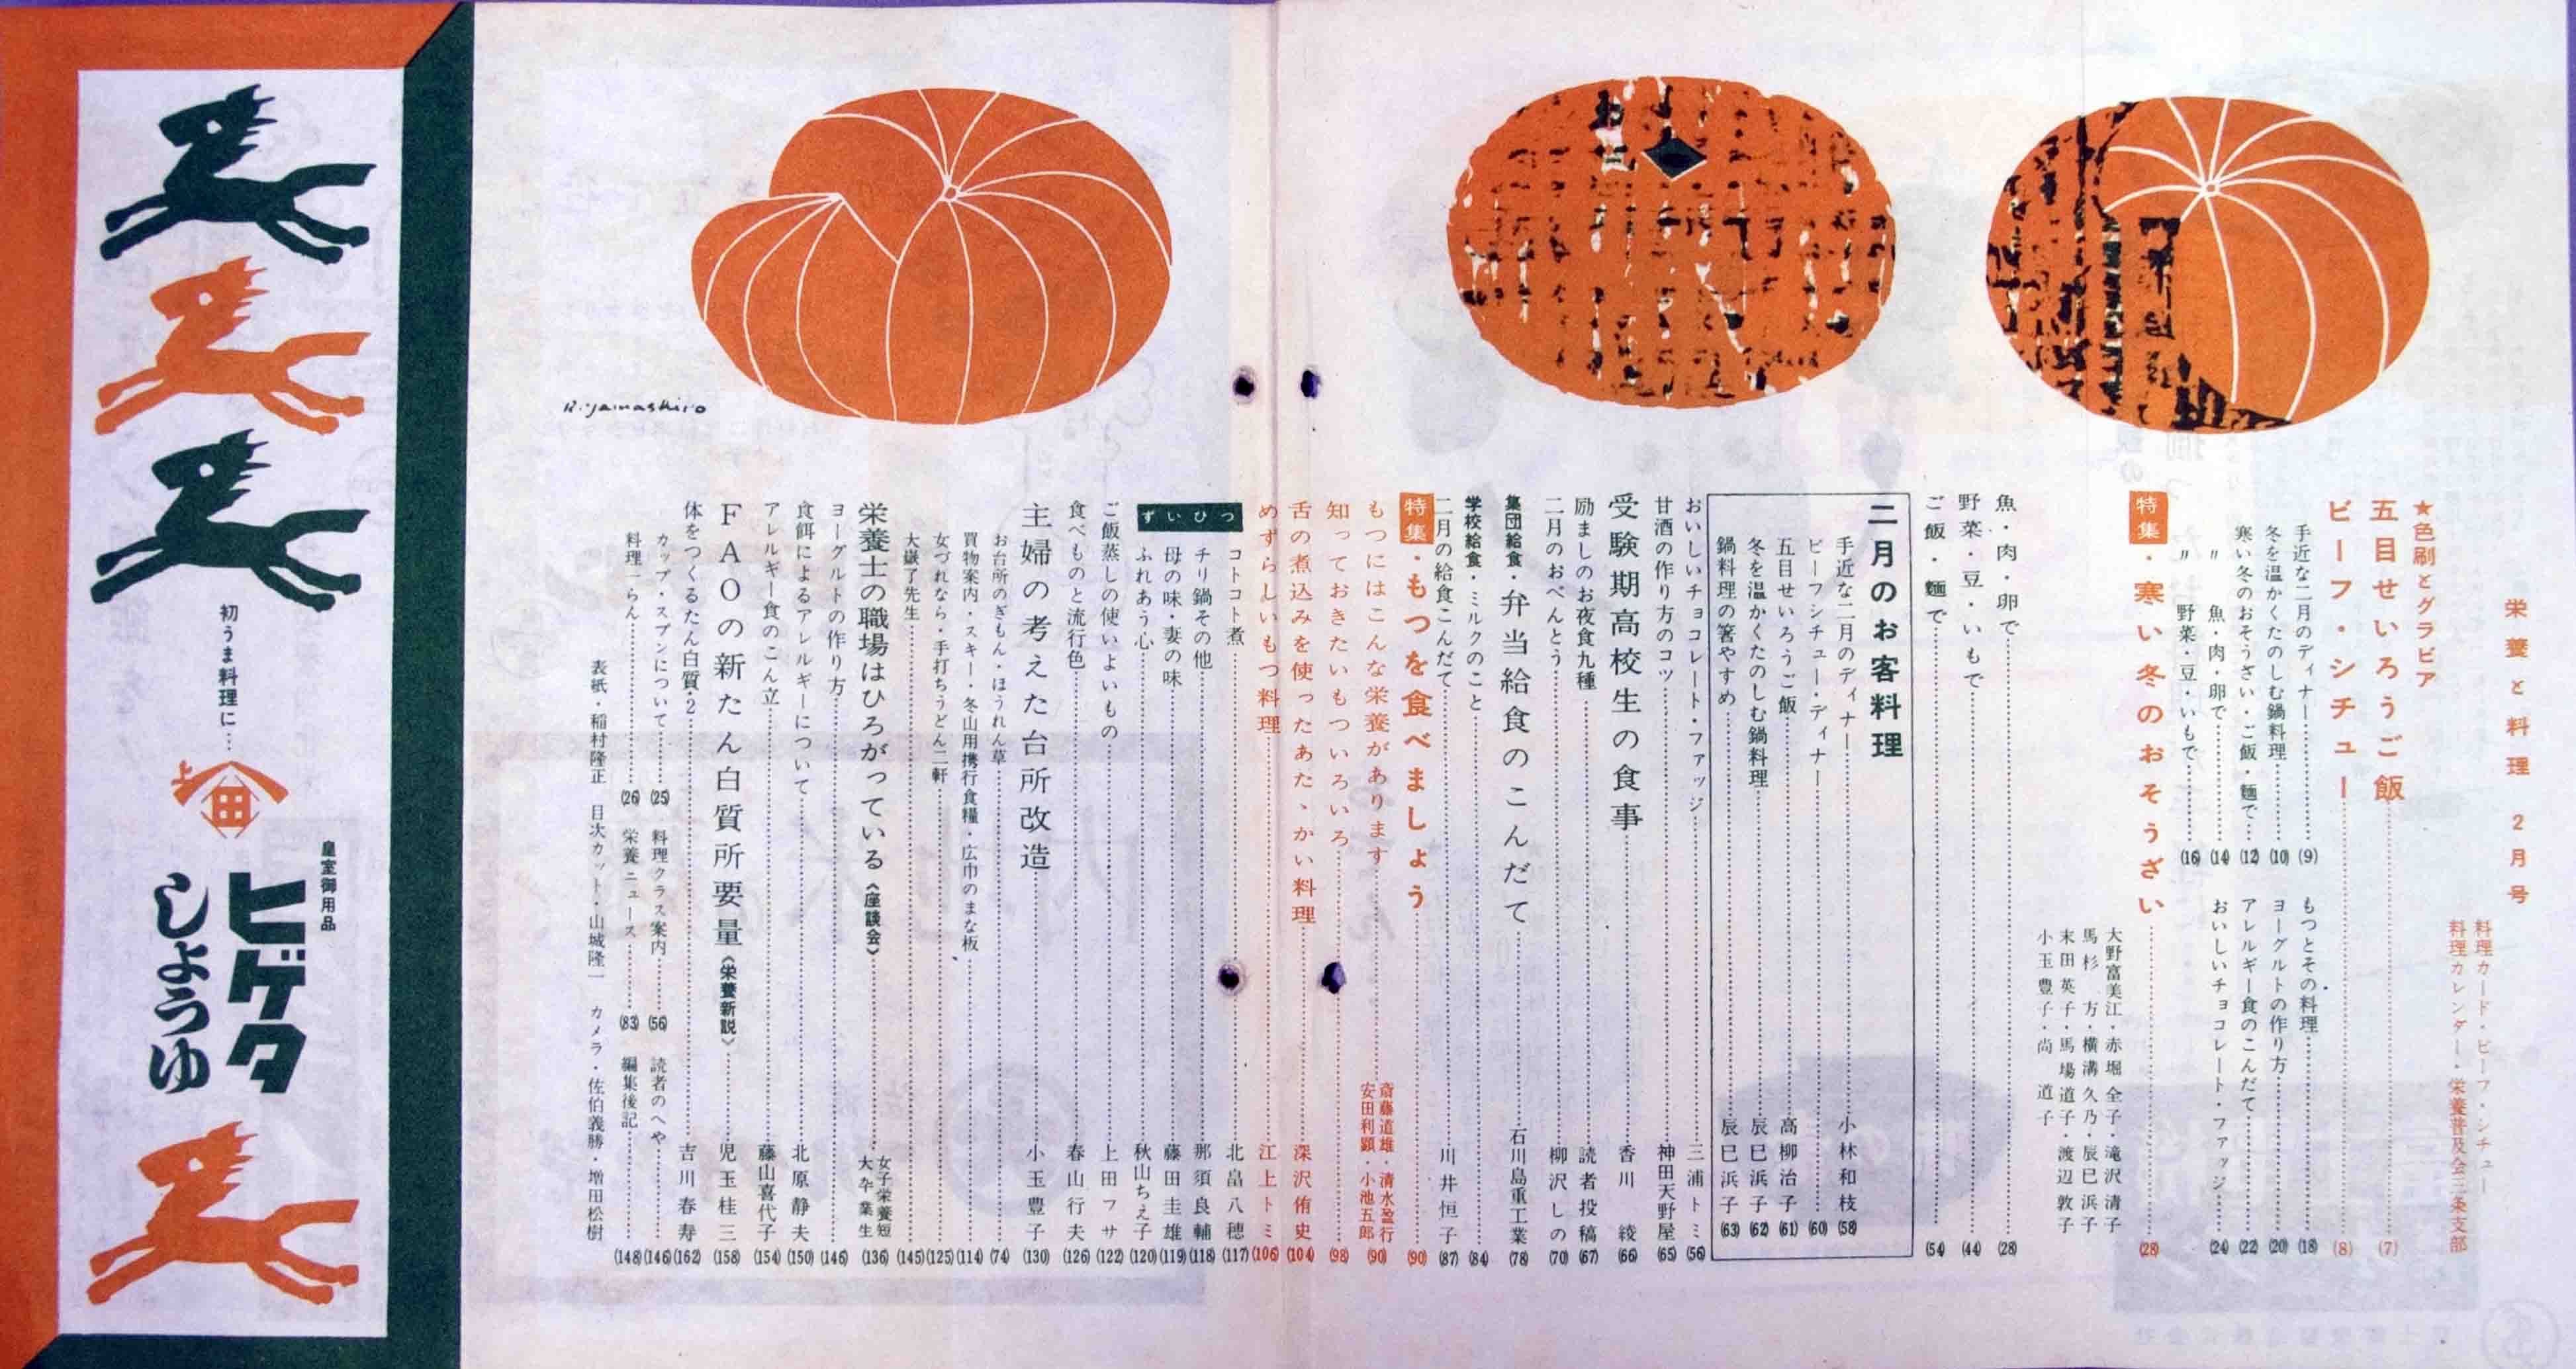 栄養と料理 2月号
料理カード・ビーフ・シチュー
料理カレンダー・栄養普及会二条支部
★色刷とグラビア
五目せいろうご飯 (7)
ビーフ・シチュー (8)
手近な二月のディナー (9)
冬を温かくたのしむ鍋料理 (10)
寒い冬のおそうざい・ご飯・麵で (12)
〃 魚・肉・卵で (14)
〃 野菜・豆・いもで (16)
もつとその料理 (18)
ヨーグルトの作り方 (20)
アレルギー食のこんだて (22)
おいしいチョコレート・ファッジ (24)
特集・寒い冬のおそうざい (28)
大野富美江・赤堀全子・滝沢清子
馬杉方・横溝久乃・辰巳浜子
末田英子・馬場道子・渡辺敦子
小玉豊子・尚道子
魚・肉・卵で (28)
野菜・豆・いもで (44)
ご飯・麵で (54)
二月のお客料理
手近な二月のディナー 小林和枝 (58)
ビーフシチュー・ディナー (60)
五目せいろうご飯 高柳治子 (61)
冬を温かくたのしむ鍋料理 辰巳浜子 (62)
鍋料理の箸やすめ 辰巳浜子 (63)
おいしいチョコレート・ファッジ 三浦トミ (56)
甘酒の作り方のコツ 神田天野屋 (65)
受験期高校生の食事 香川綾 (66)
励ましのお夜食九種 読者投稿 (67)
二月のおべんとう 柳沢しの (70)
集団給食・弁当給食のこんだて 石川島重工業 (78)
学校給食・ミルクのこと (84)
二月の給食こんだて 川井恒子 (87)
特集・もつを食べましょう (90)
もつにはこんな栄養があります 斎藤道雄・清水盈行 安田利顕・小池五郎 (90)
知っておきたいもついろいろ (98)
舌の煮込みを使ったあたゝかい料理 深沢侑史 (104)
めずらしいもつ料理 江上トミ (106)
ずいひつ
コトコト煮 北畠八穂 (117)
チリ鍋その他 那須良輔 (118)
母の味・妻の味 藤田圭雄 (119)
ふれあう心 秋山ちえ子 (120)
ご飯蒸しの使いよいもの 上田フサ (122)
食べものと流行色 春山行夫 (126)
主婦の考えた台所改造 小玉豊子 (130)
お台所のぎもん・ほうれん草 (74)
買物案内・スキー・冬山用携行食糧・広巾のまな板 (114)
女づれなら・手打ちうどん二軒 (125)
大嶽了先生 (145)
栄養士の職場はひろがっている《座談会》 女子栄養短大卒業生 (136)
ヨーグルトの作り方 (146)
食餌によるアレルギーについて 北原静夫 (150)
アレルギー食のこん立 藤山喜代子 (154)
FAOの新たん白質所要量《栄養新説》 児玉桂三 (158)
体をつくるたん白質・2 吉川春寿 (162)
カップ・スプンについて (25) 料理クラス案内 (56) 読者のへや (146)
料理一らん (26) 栄養ニュース (83) 編集後記 (148)
表紙・稲村隆正 目次カット・山城隆一 カメラ・佐伯義勝・増田松樹
R.yamashiro
初うま料理に…
上
田
皇室御用品
ヒゲタ
しょうゆ